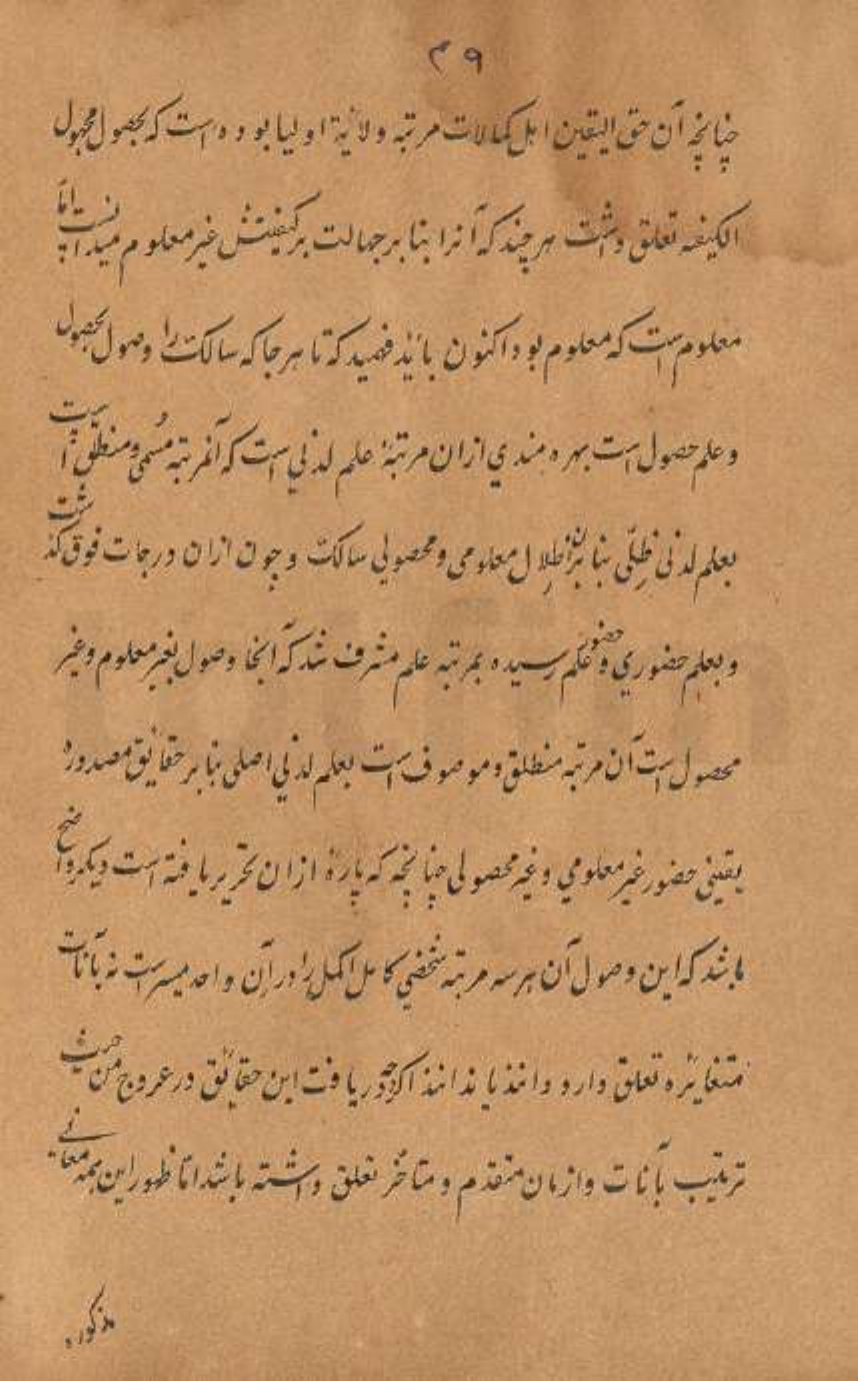 ۴۹
چنانچه آن حق الیقین اهل کمالات مرتبه ولایة اولیا بوده است که بحصول مجهول
الکیفه تعلق داشت هر چند که آنرا بنا بر جهالت بر کیفیتش غیر معلوم میدانست اما
معلوم است که معلوم بود اکنون باید فهمید که تا هر جا که سالک را وصول بحصول
و علم حصول است بهره مندی ازان مرتبۀ علم لدنی است که آنمرتبه مسمی و منطلق است
بعلم لدنی ظلّی بنا بر ظلال معلومی و محصولی سالک و چون ازان درجات فوق گذشت
و بعلم حضوری و حضور علم رسیده بمرتبه علم مشرف شد که آنجا وصول بغیر معلوم و غیر
محصول است آن مرتبه منطلق و موصوف است بعلم لدنی اصلی بنا بر حقایق مصدوره
یقینی حضور غیر معلومی و غیر محصولی چنانچه که پارۀ ازان تحریر یافته است دیگر واضح
باشد که این وصول آن هر سه مرتبه شخصی کامل اکمل را در آن واحد میسر است نه بآنات
متغائره تعلق دارد دانند یا ندانند اگرچه دریافت این حقائق در عروج من حیث
ترتیب بآنات و ازمان متقدم و متاخر تعلق داشته باشد اما ظهور این همه معانی
مذکوره